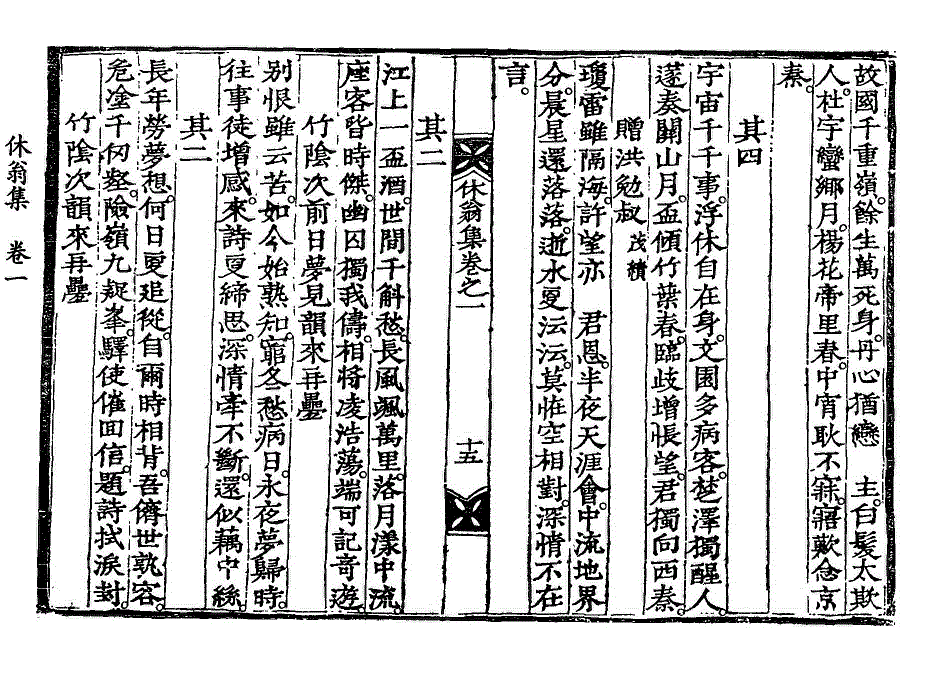 故國千重嶺。餘生萬死身。丹心猶戀　主。白髮太欺
人。杜宇蠻鄉月。楊花帝里春。中宵耿不寐。寤歎念京
秦。
其四
宇宙千千事。浮休自在身。文園多病客。楚澤獨醒人。
遂奏關山月。盃傾竹葉春。臨歧增悵望。君獨向西秦。
贈洪勉叔 茂績
瓊雷雖隔海。許望亦　君恩。半夜天涯會。中流地界
分。晨星還落落。逝水更沄沄。莫恠空相對。深情不在
言。
休翁集卷之一
十五
其二
江上一盃酒。世間千斛愁。長風颯萬里。落月漾中流。
座客皆時傑。幽囚獨我儔。相將凌浩蕩。端可記奇遊。
竹陰次前日夢見韻來再疊
別恨雖云苦。如今始熟知。窮冬愁病日。永夜夢歸時。
往事徒增感。來詩更締思。深情牽不斷。還似藕中絲。
其二
長年勞夢想。何日更追從。自爾時相背。吾儕世孰容。
危塗千仞壑。險嶺九疑峯。驛使催回信。題詩拭淚封。
竹陰次韻來再疊
休翁集　卷一